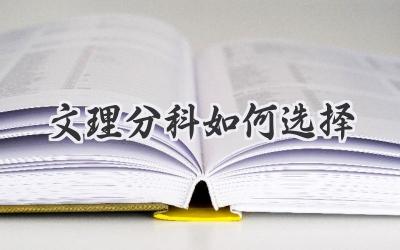 文理分科如何选择